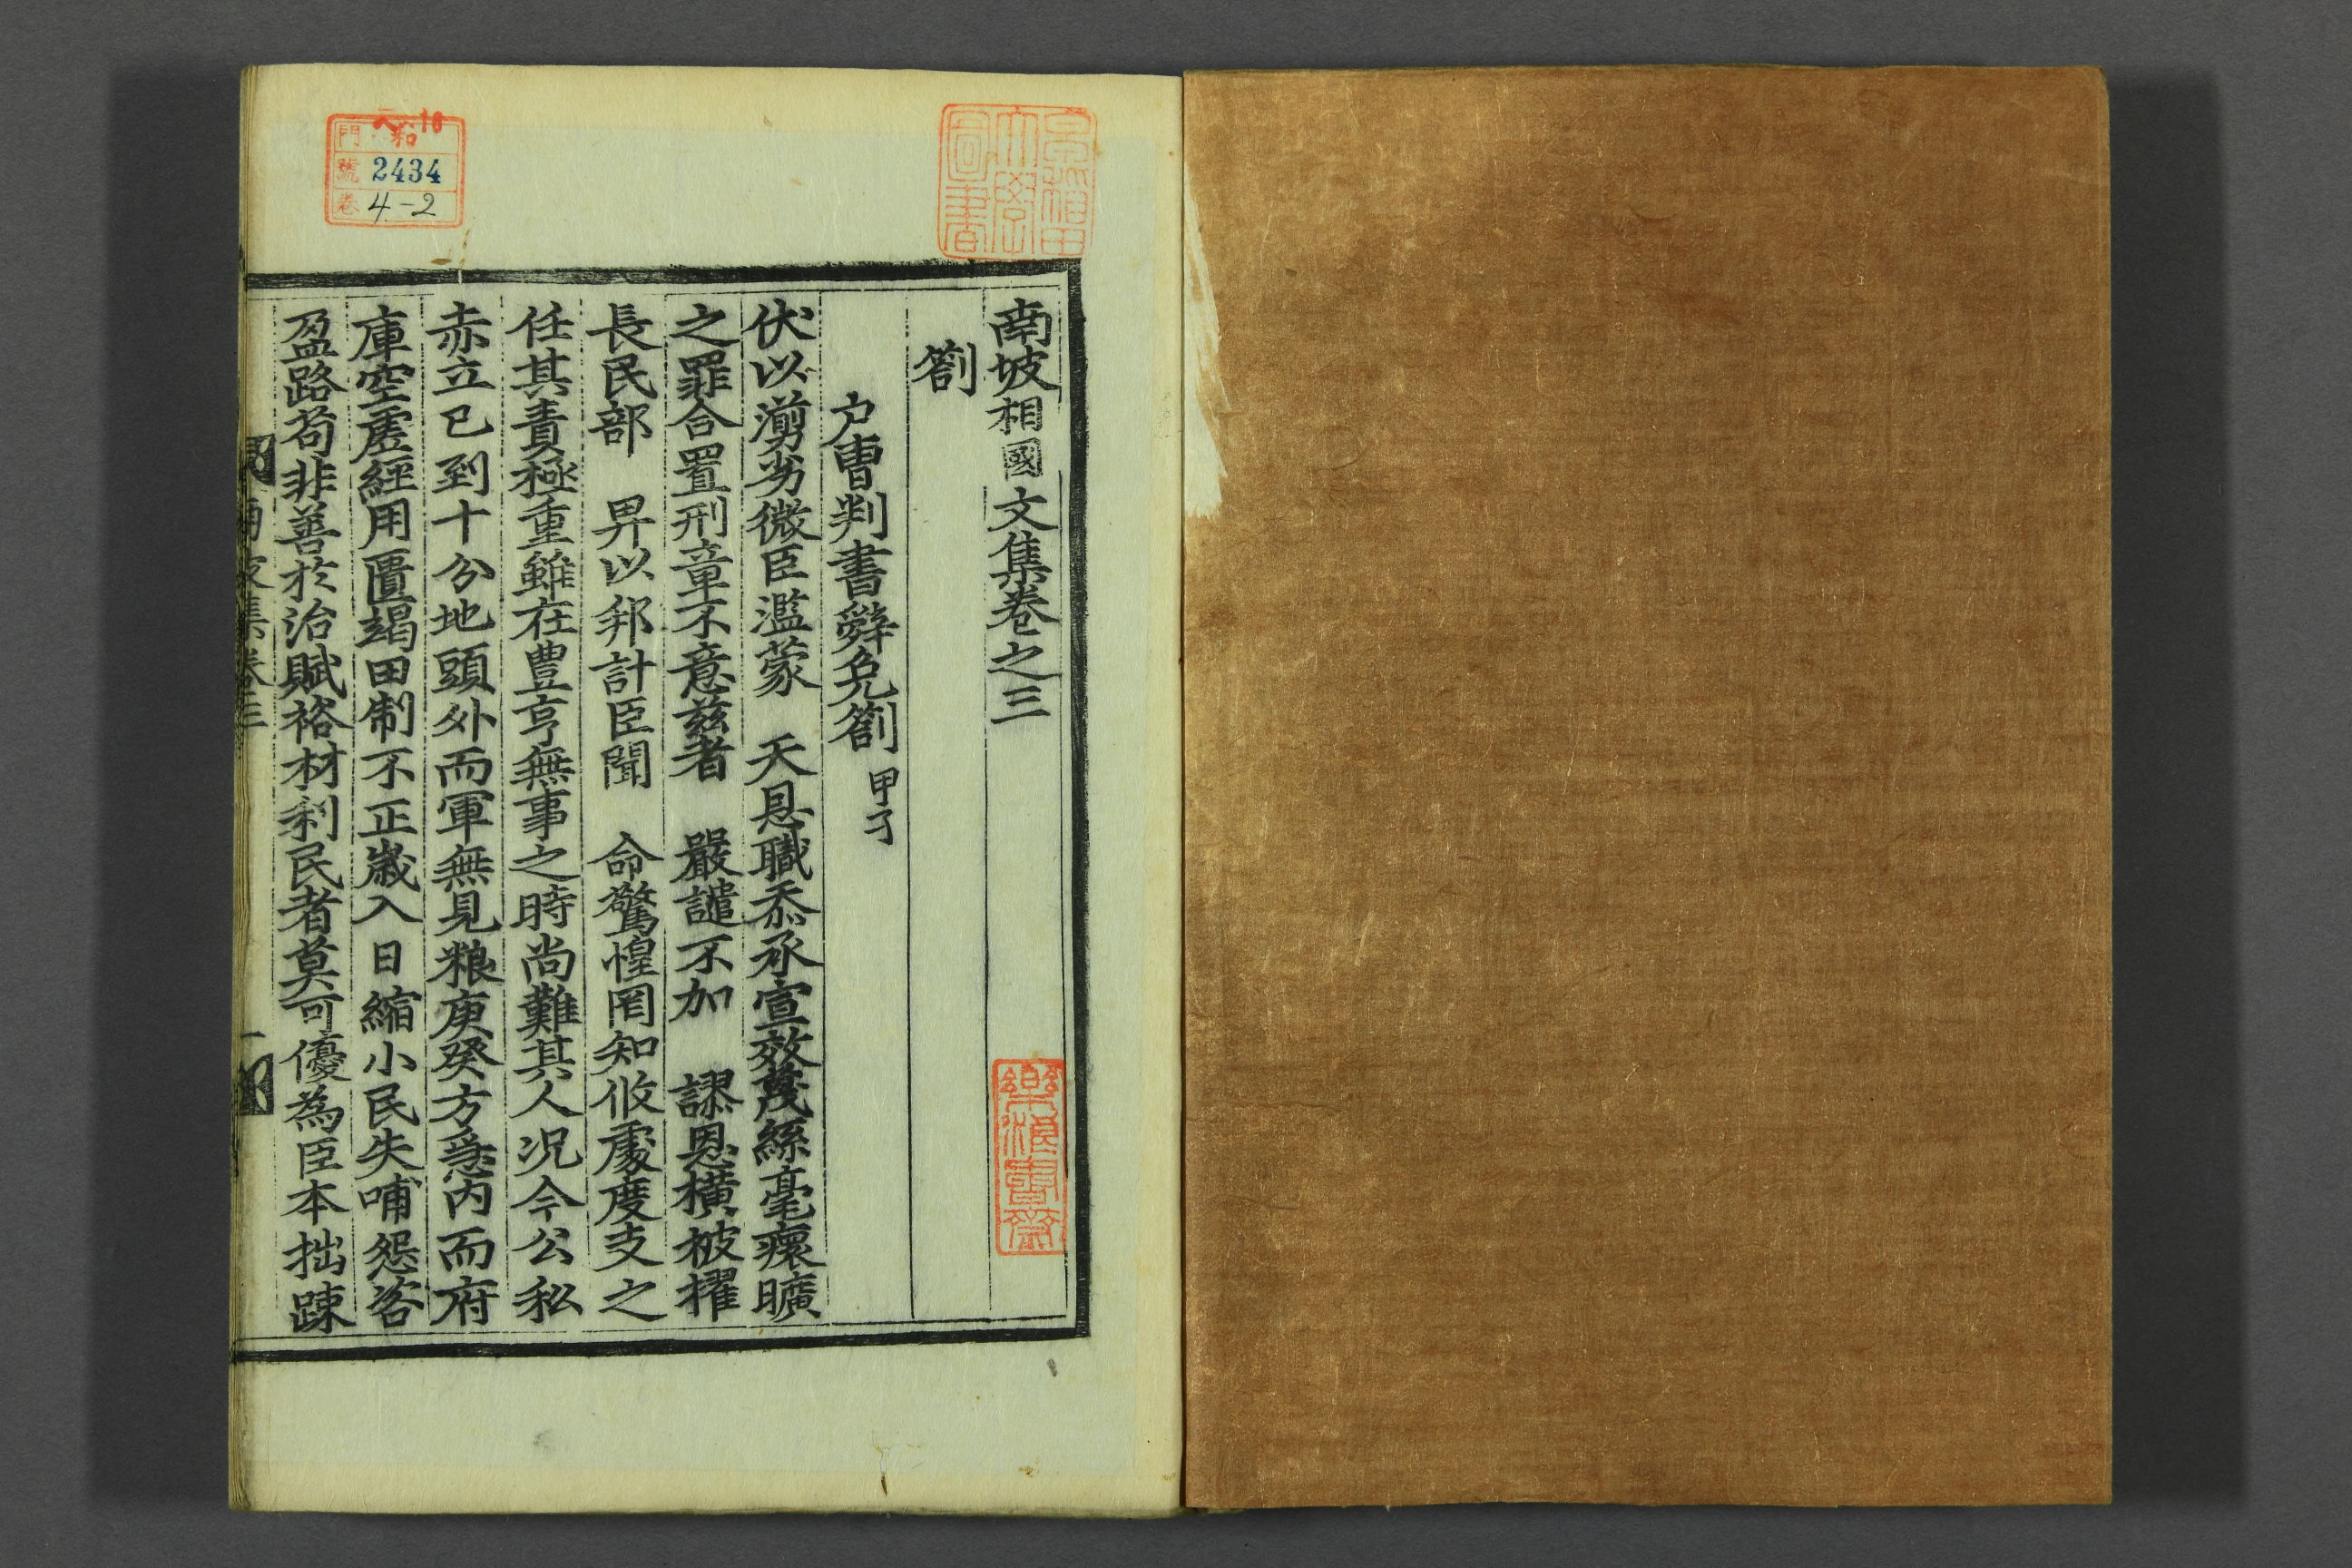 南坡相國文集卷之三
劄
戶曹判書辭免劄 甲子
伏以湔劣微臣濫蒙 天恩職忝承宣效蔑絲毫瘝曠
之罪合置刑章不意玆者 嚴譴不加 謬恩橫被擢
長民部 畀以邦計臣聞 命驚惶罔知攸處度支之
任其責極重雖在豊亨無事之時尚難其人況今公私
赤立已到十分地頭外而軍無見粮庚癸方急內而府
庫空虛經用匱竭田制不正歲入日縮小民失哺怨咨
盈路苟非善於治賦裕材利民者莫可優為臣本拙踈
南坡集卷三 一
早稲田大學圖書
樂浪書齋
門 和
號 2434
卷 4-2